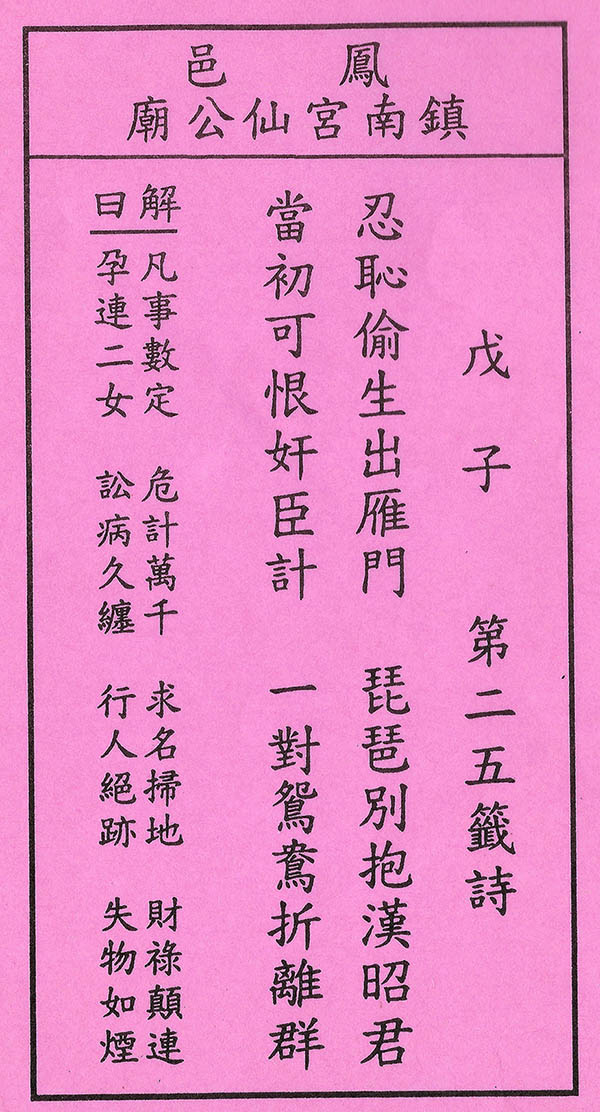 鳳邑
鎮南宮仙公廟
戊子 第二五籤詩
忍恥偷生出雁門 琵琶別抱漢昭君
當初可恨奸臣計 一對鴛鴦折離群
解曰
凡事數定 危計萬千 求名掃地 財祿顛連
孕連二女 訟病久纏 行人絕跡 失物如煙